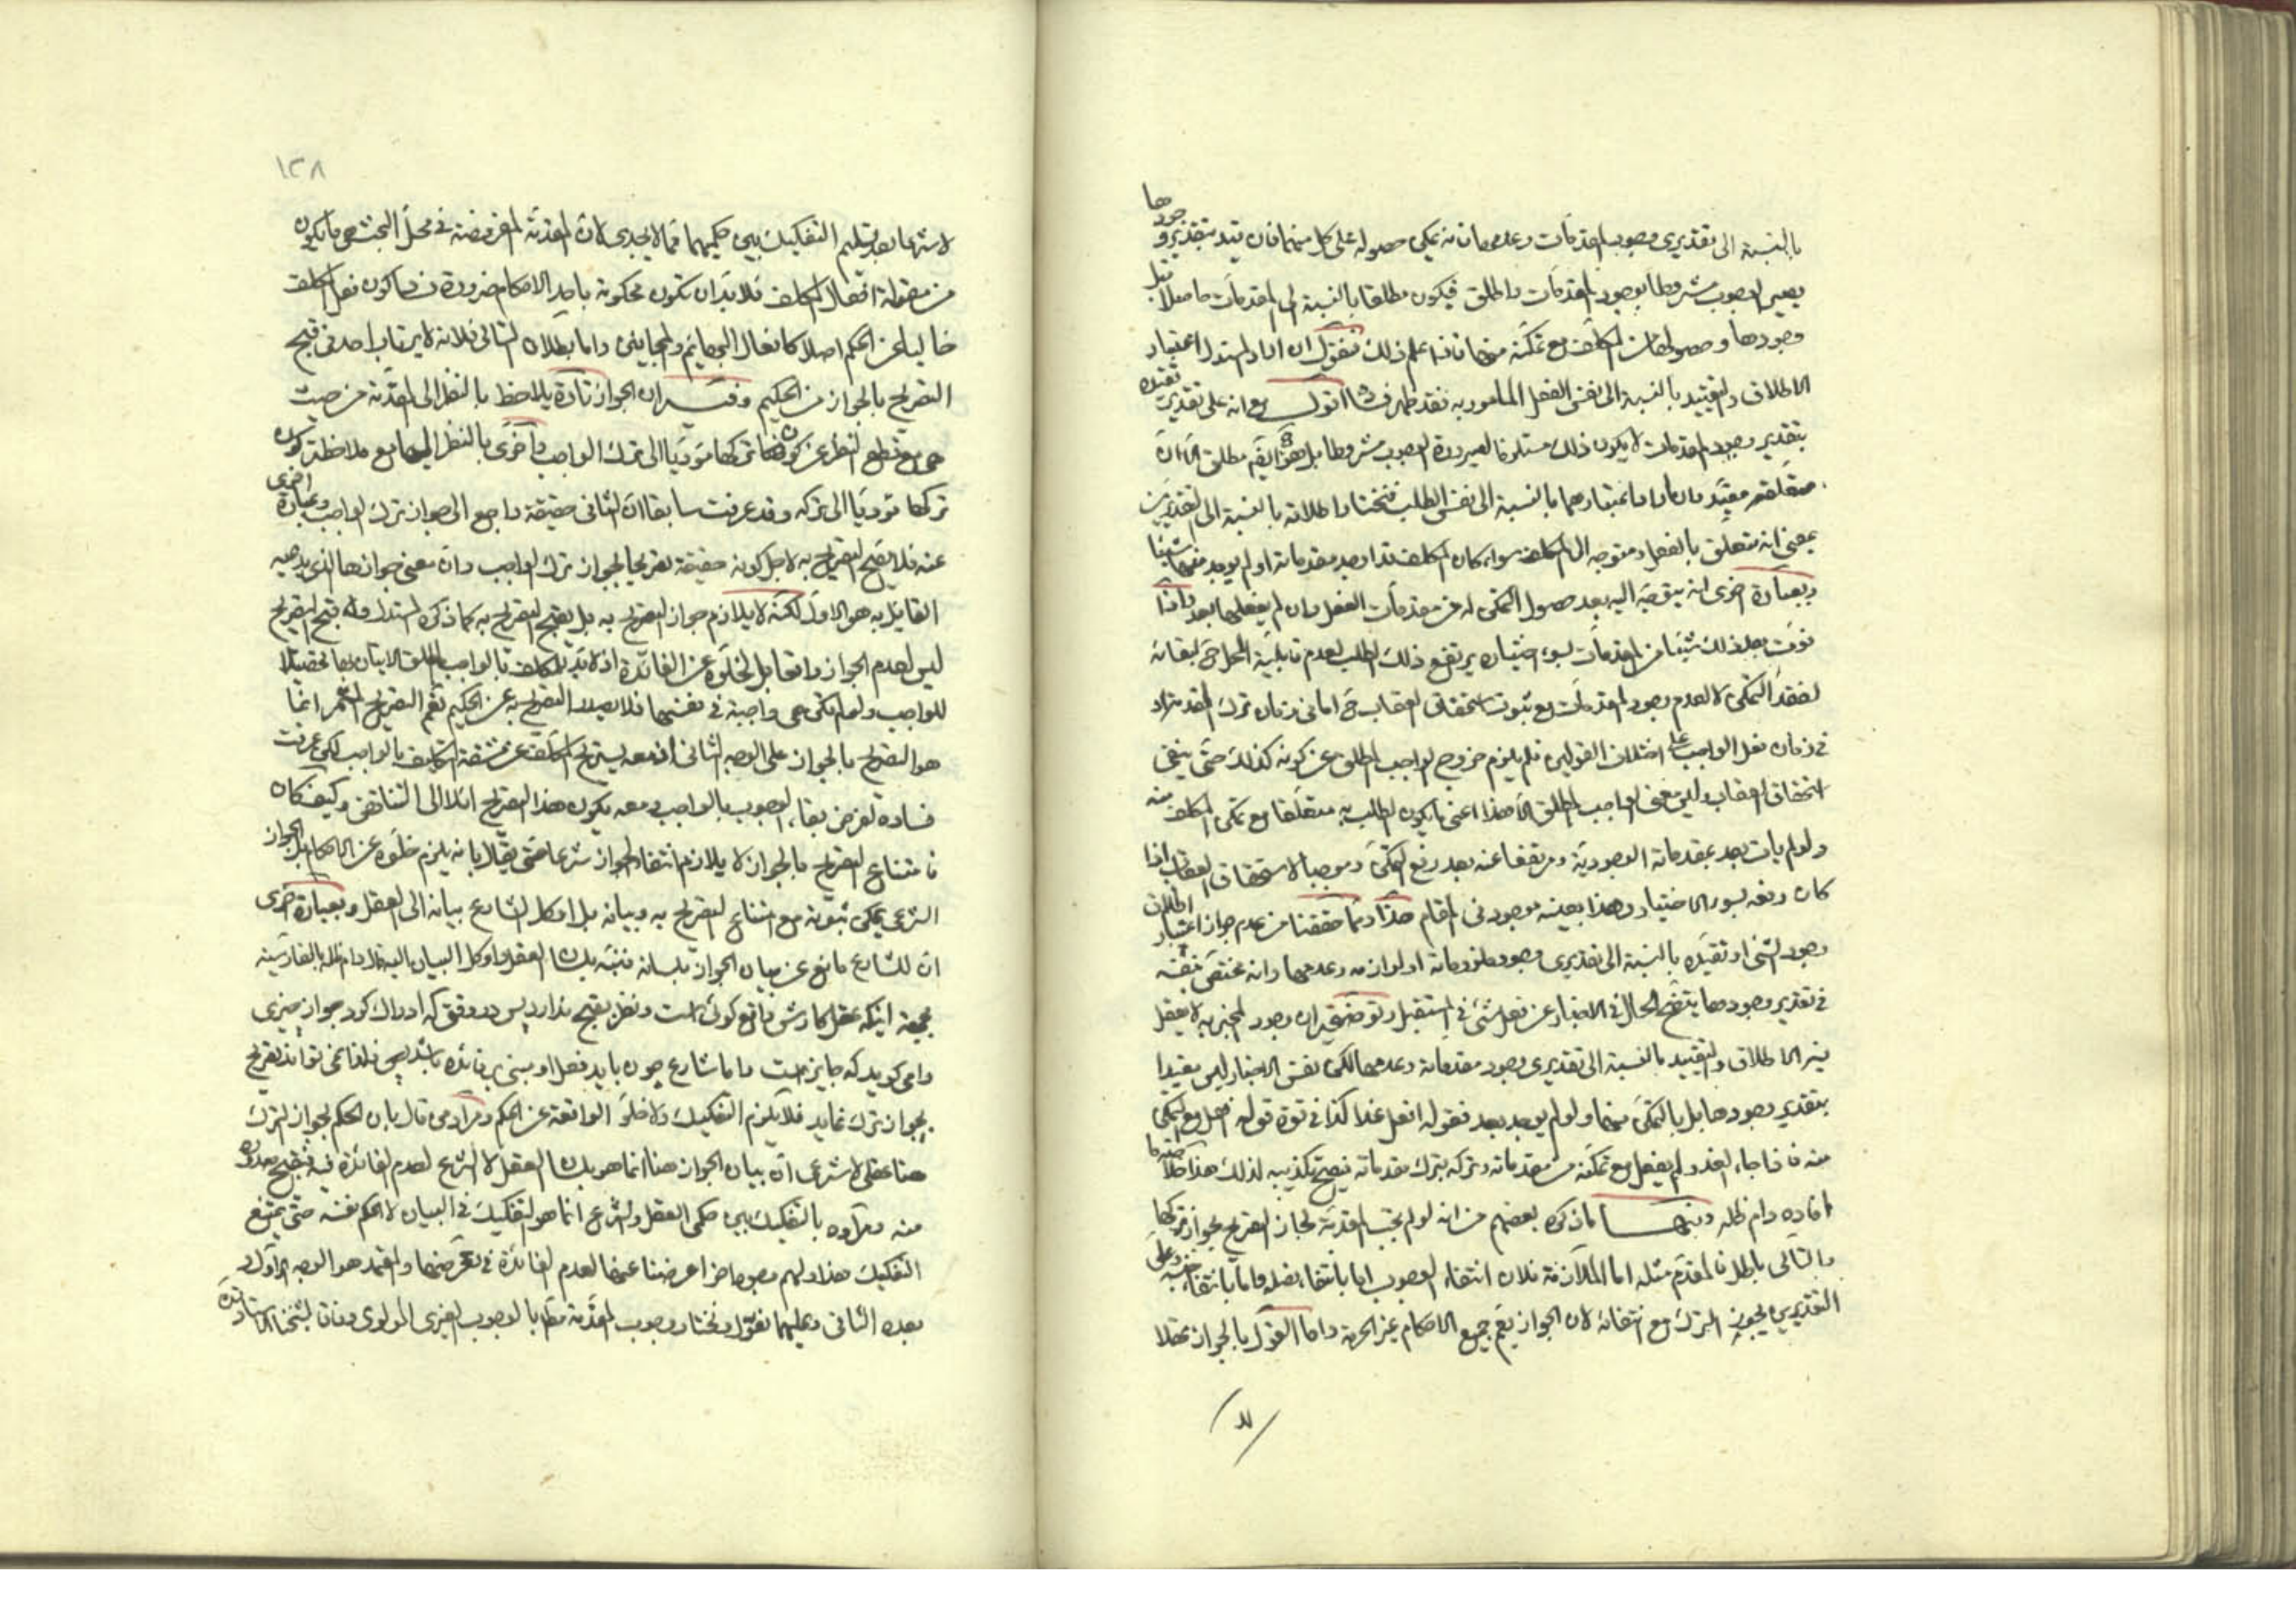 بالنسبة الى تقديرى وجوب المقدمات وعدمها فانه يمكن حصوله على كل منهما فان قيد بتقدير وجودها
يصير الوجوب مشروطا بوجود المقدمات واطلق فيكون مطلقا بالنسبة الى المقدمات حاصلا قبل
وجودها وحصولها من المكلف مع تمكنه منها فاذا علم ذلك فنقول ان اراد المستدل اعتبار
الاطلاق والتقييد بالنسبة الى نفس الفعل المأمور به فقد ظهر فساد اتوك مع انه على تقدير تقيده
بتقدير وجود المقدمات لا يكون ذلك مستلزما لصيرورة الوجوب مشروطا بل هو ايضا مطلق الا ان
متعلقه مقيد وان اراد اعتبارهما بالنسبة الى نفس الطلب فنختار اطلاقه بالنسبة الى التقديرين
بمعنى انه متعلق بالفعل ومتوجه الى المكلف سواء كان المكلف قد اوجد مقدماته او لم يوجد منها شيئا
وبعبارة اخرى انه يتوجه اليه بعد حصول التمكن له من مقدمات الفعل وان لم يفعلها بعد واذا
فوت بعد ذلك شيئا من المقدمات بسوء اختياره يرتفع ذلك الطلب لعدم قابلية المحل ح لبقائه
لفقد التمكن لا لعدم وجود المقدمات مع ثبوت استحقاق العقاب ح اما فى زمان ترك المقدمة او
فى زمان فعل الواجب على اختلاف القولين فلم يلزم خروج الواجب المطلق عن كونه كذلك حتى ينفى
استحقاق العقاب وليس معنى الواجب المطلق الا هذا اعنى ما يكون الطلب به متعلقا مع تمكن المكلف منه
ولو لم يات بعد بمقدماته الوجودية ومرتفعا عنه بعد رفع التمكن وموجبا لاستحقاق العقاب اذا
كان رفعه بسوء الاختيار وهذا بعينه موجود فى المقام هذا ومما حققنا من عدم جواز اعتبار اطلاق
وجود الشئ او تقيده بالنسبة الى تقديرى وجود ملزوماته او لوازمه وعدمها وانه مختص بنفسه
فى تقدير وجودها يتضح الحال فى الاخبار عن فعل شئ فى المستقبل وتوضيحه ان وجود المخبر به لا يعقل
فيه الاطلاق والتقييد بالنسبة الى تقديرى وجود مقدماته وعدمها لكن نفس الاخبار ليس مقيدا
بتقدير وجودها بل بالتمكن منها ولو لم يوجد بعد فقوله افعل غدا كذا فى قوة قوله افعل مع التمكن
منه فاذا جاء الغد ولم يفعل مع تمكنه من مقدماته وتركه بترك مقدماته فيصح تكذيبه لذلك هذا خلاصة ما
افاده دام ظله ومنها ما ذكره بعضهم من انه لو لم يجب المقدمة لجاز التصريح بجواز تركها
والتالى باطل فالمقدم مثله اما الملازمة فلان انتفاء الوجوب اما بانتفاء فصله واما بانتفاء جنسه وعلى
التقديرين يجوز الترك مع انتفائه لان الجواز يعم جميع الاحكام غير الحرمة واما القول بالجواز عقلا
١٣٨
لا شرعا بعد تسليم التفكيك بين حكميهما فمما لا يجدى لان المقدمة المفروضة فى محل البحث هى ما يكون
من مقولة افعال المكلف فلا بد ان تكون محكومة باحد الاحكام ضرورة فساد كون فعل المكلف
خاليا عن الحكم اصلا كافعال البهايم والمجانين واما بطلان التالى فلانه لا يرتاب احد فى قبح
التصريح بالجواز من الحكيم وفيه ان الجواز تارة يلاحظ بالنظر الى المقدمة من حيث
هى مع قطع النظر عن كون تركها مؤديا الى ترك الواجب واخرى بالنظر اليها مع ملاحظة كون
تركها مؤديا الى تركه وقد عرفت سابقا ان الثانى حقيقة راجع الى جواز ترك الواجب وعبارة اخرى
عنه فلا يصح التصريح به لاجل كونه حقيقة تصريحا بجواز ترك الواجب وان معنى جوازها الذى يدعيه
القايل به هو الاول لكنه لا يلازم جواز التصريح به بل يقبح التصريح به كما ذكره المستدل وقبح التصريح
ليس لعدم الجواز واقعا بل لخلوه عن الفائدة اذ لا بد للمكلف بالواجب المطلق الاتيان بها تحصيلا
للواجب ولو لم تكن هى واجبة فى نفسها فلا يصدر التصريح به عن الحكيم نعم التصريح المثمر انما
هو التصريح بالجواز على الوجه الثانى اذ معه يستريح المكلف عن مشقة التكليف بالواجب لكن عرفت
فساده لفرض بقاء الوجوب بالواجب ومعه يكون هذا التصريح ائلا الى التناقض وكيف كان
فامتناع التصريح بالجواز لا يلازم انتفاء الجواز شرعا حتى يقال بانه يلزم خلوه عن الاحكام بل الجواز
الشرعى يمكن ثبوته مع امتناع التصريح به وبيانه بل اوكل الشارع بيانه الى العقل وبعبارة اخرى
ان للشارع مانع عن بيان الجواز بلسانه فنبه بلسان العقل واوكل البيان اليه قال دام ظله بالفارسية
بجهة اينكه عقل كارش واقع كوئى است ونظر بقبح ندارد پس در وقتى كه ادراك كرد جواز چيزى
را مى كويد كه جايز است واما شارع چون بايد فعل او مبنى بر فائده باشد پس فلذا نمى تواند تصريح
بجواز ترك نمايد فلا يلزم التفكيك ولا خلو الواقعة عن الحكم ومراد من قال بان الحكم بجواز الترك
هنا عقلى لا شرعى ان بيان الجواز هنا انما هو بلسان العقل لا الشرع لعدم الفائدة فيه فيقبح صدوره
منه ومراده بالتفكيك بين حكمى العقل والشرع انما هو التفكيك فى البيان لا الحكم نفسه حتى يمتنع
التفكيك هذا ولهم وجوه اخر اعرضنا عنها لعدم الفائدة فى تعرضها والمعتمد هو الوجه الاول و
بعده الثانى وعليهما نعول ونختار وجوب المقدمة مطلقا بالوجوب الغيرى المولوى وفاقا لشيخنا الاستاد قده